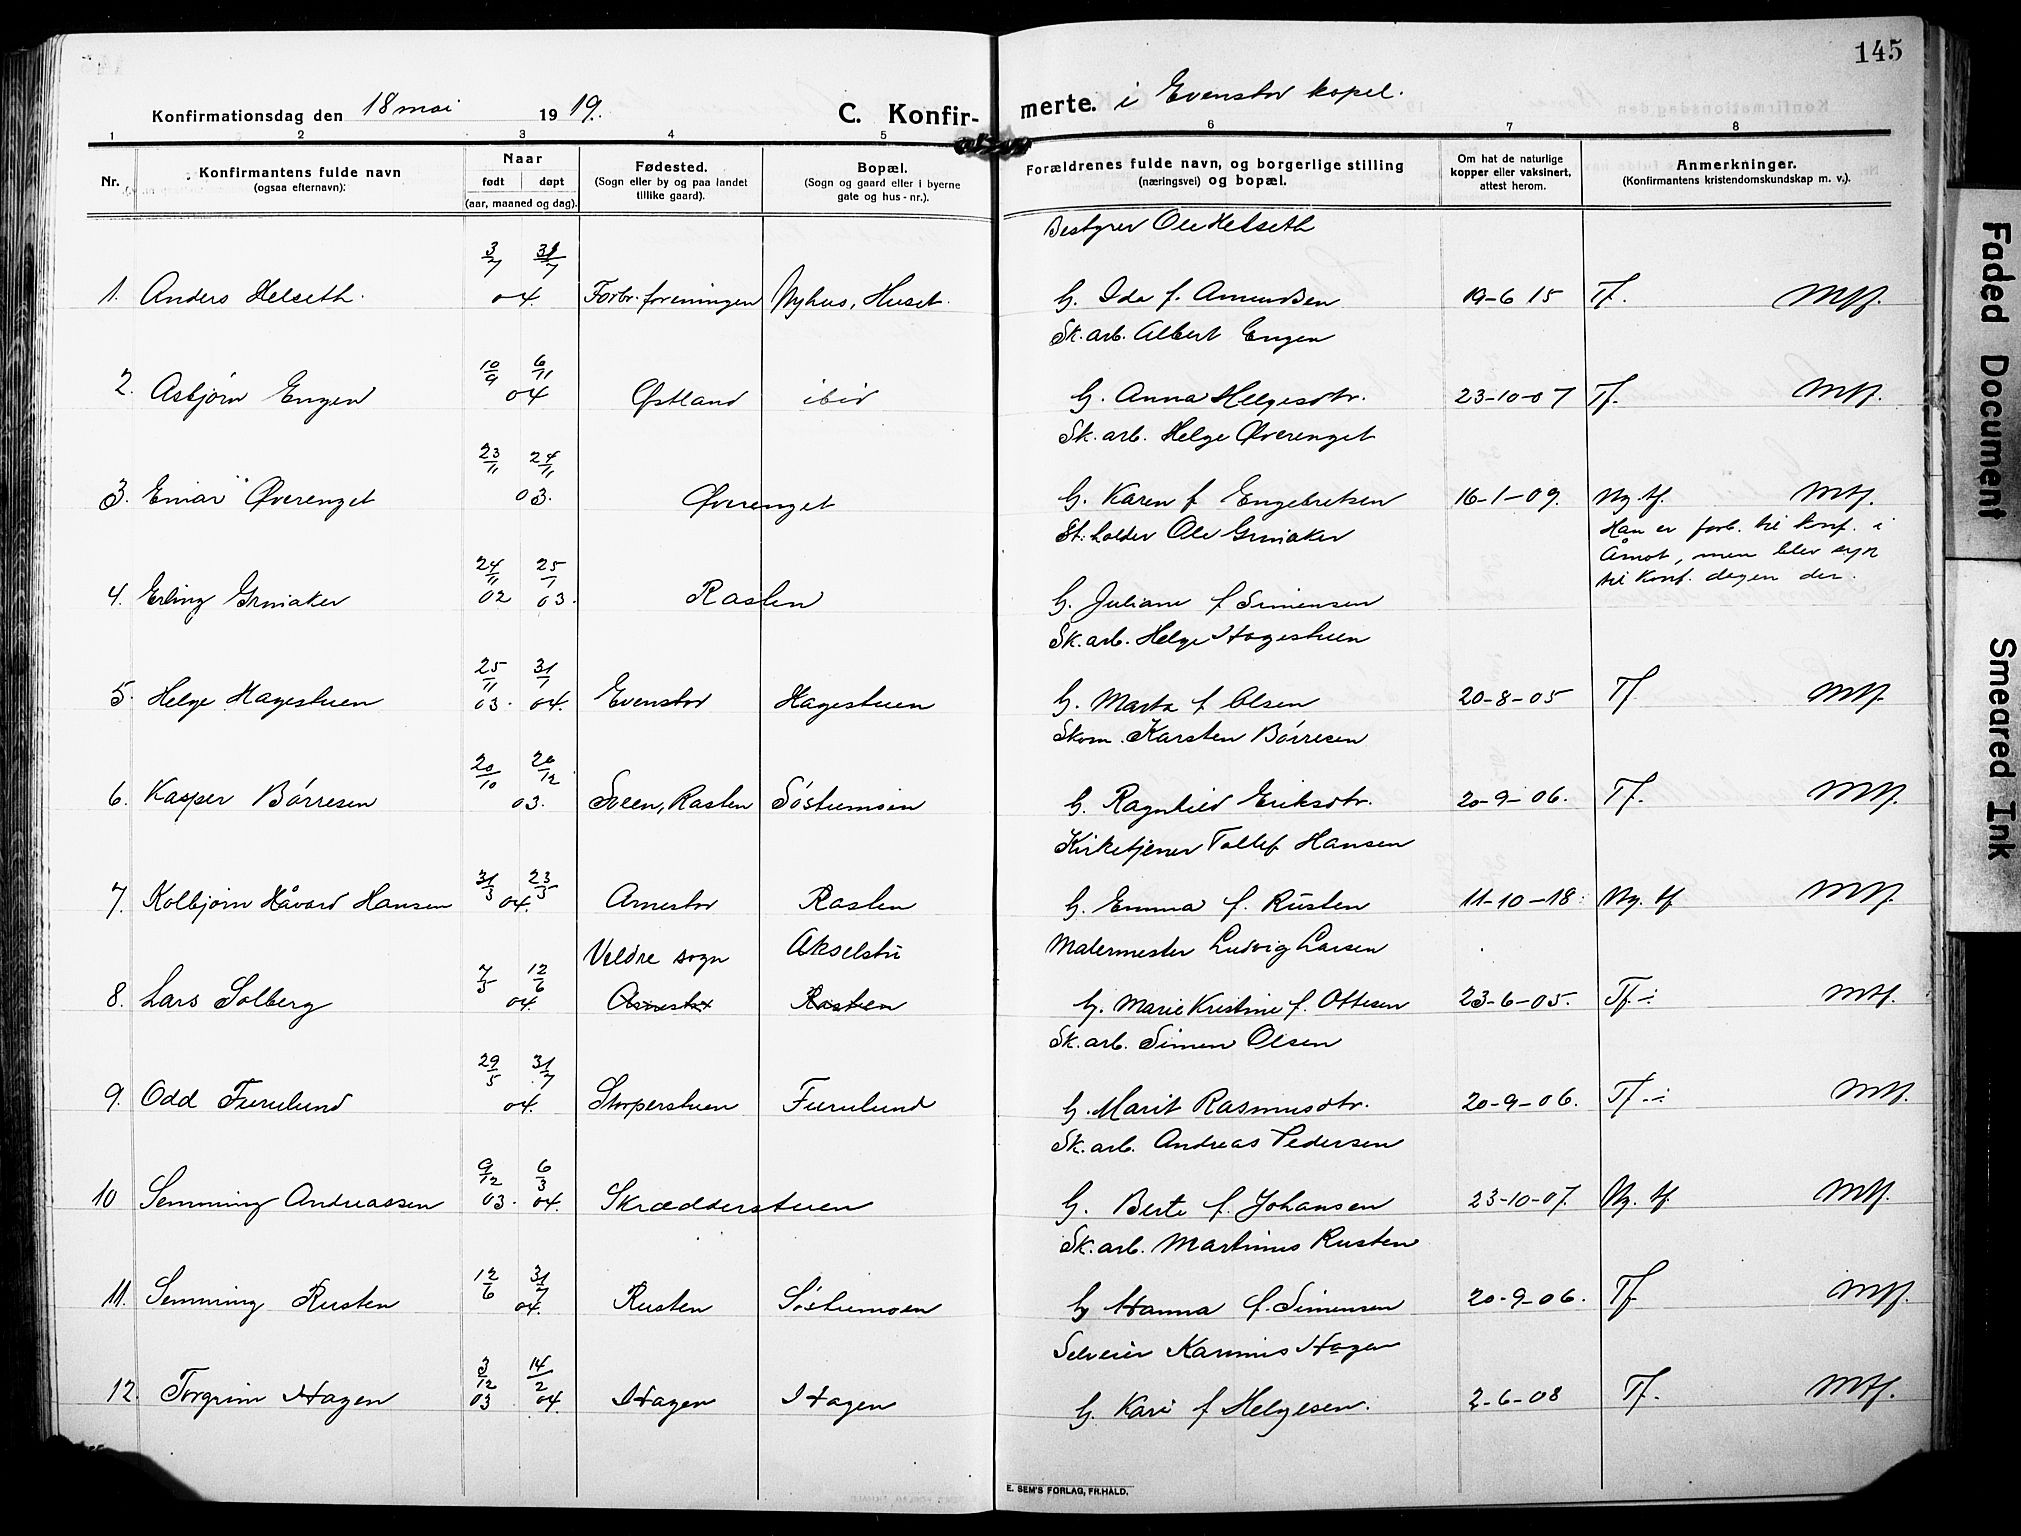 145
Konfirmationsdag den 18 mai 1919. C. Konfirmerte. i Evenstad kapel.
1 2 3 4 5 6 7 8
Nr.
Konfirmantens fulde navn
(ogsaa efternavn).
Naar
født døpt
(aar, maaned og dag).
Fødested.
(Sogn eller by og paa landet
tillike gaard).
Bopæl.
(Sogn og gaard eller i byerne
gate og hus-nr.).
Forældrenes fulde navn, og borgerlige stilling
(næringsvei) og bopæl.
Om hat de naturlige
kopper eller vaksinert,
attest herom.
Anmerkninger.
(Konfirmantens kristendomskundskap m. v.).
Bestyrer Ole Helseth
3/7 31/7
1. Anders Helseth. 04. Forbr. foreningen Nyhus, Huset. G. Ida f. Amundsen 19-6 15 Tf. Mtf.
Sk. arb. Albert Engen
10/9 6/11
2. Asbjørn Engen 04 Østland ibid G. Anna Helgesdtr. 23-10-07 Tf. Mtf.
Sk. arb. Helge Øverenget
23/11 24/11
3. Einar Øverenget 03. Øverenget G. Karen f Engebretsen 16-1-09. Ng. tf. Mtf.
St. holder Ole Grinaker
Han er forb. til konf. i
Åmot, men blev syk
til konf. dagen der.
24/11 25/1
4. Erling Grinaker 02 03. Rasten G. Juliane f Simensen
Sk. arb. Helge Hagestuen
25/11 31/1
5. Helge Hagestuen 03. 04. Evenstad Hagestuen G. Marta f Olsen 20-8-05 Tf Mtf.
Skom. Karsten Børresen
20/10 20/12
6. Kasper Børresen 03. Sveen, Rasten Søstumoen G. Ragnhild Eriksdtr. 20-9-06. Tf. Mtf.
Kirketjener Tollef Hansen
31/3 23/5
7. Kolbjørn Håvard Hansen 04. Arnestad Rasten G. Emma f. Rusten 11-10-18 Ng. tf Mtf.
Malermester Ludvig Larsen
Veldre sogn Akselstu
7/5 12/6
8. Lars Solberg 04. Arnestad Rasten G. Marie Kristine f. Ottesen 23-6-05. Tf ÷ Mtf.
Sk. arb. Simen Olsen
29/5 31/7
9. Odd Furulund 04. Storperstuen Furulund G. Marit Rasmusdtr. 20-9-06. Tf. ÷ Mtf.
Sk. arb. Andreas Pedersen
9/12 6/3
10 Semming Andreassen 03. 04. Skrædderstuen G. Berte f. Johansen 23-10-07. Ng. tf. Mtf.
Sk. arb. Martinus Rusten
12/6 31/7
11. Semming Rusten 04. Rusten Søstumoen G Hanna f. Simensen 20-9-06. Tf Mtf.
Selveier Karinus Hagen
3/12 14/2
12. Torgrim Hagen 03 04. Hagen Hagen G. Kari f Helgesen. 2-6-08 Tf. Mtf.
E. SEM'S FORLAG, FR.HALD.
Faded Document
Smeared Ink